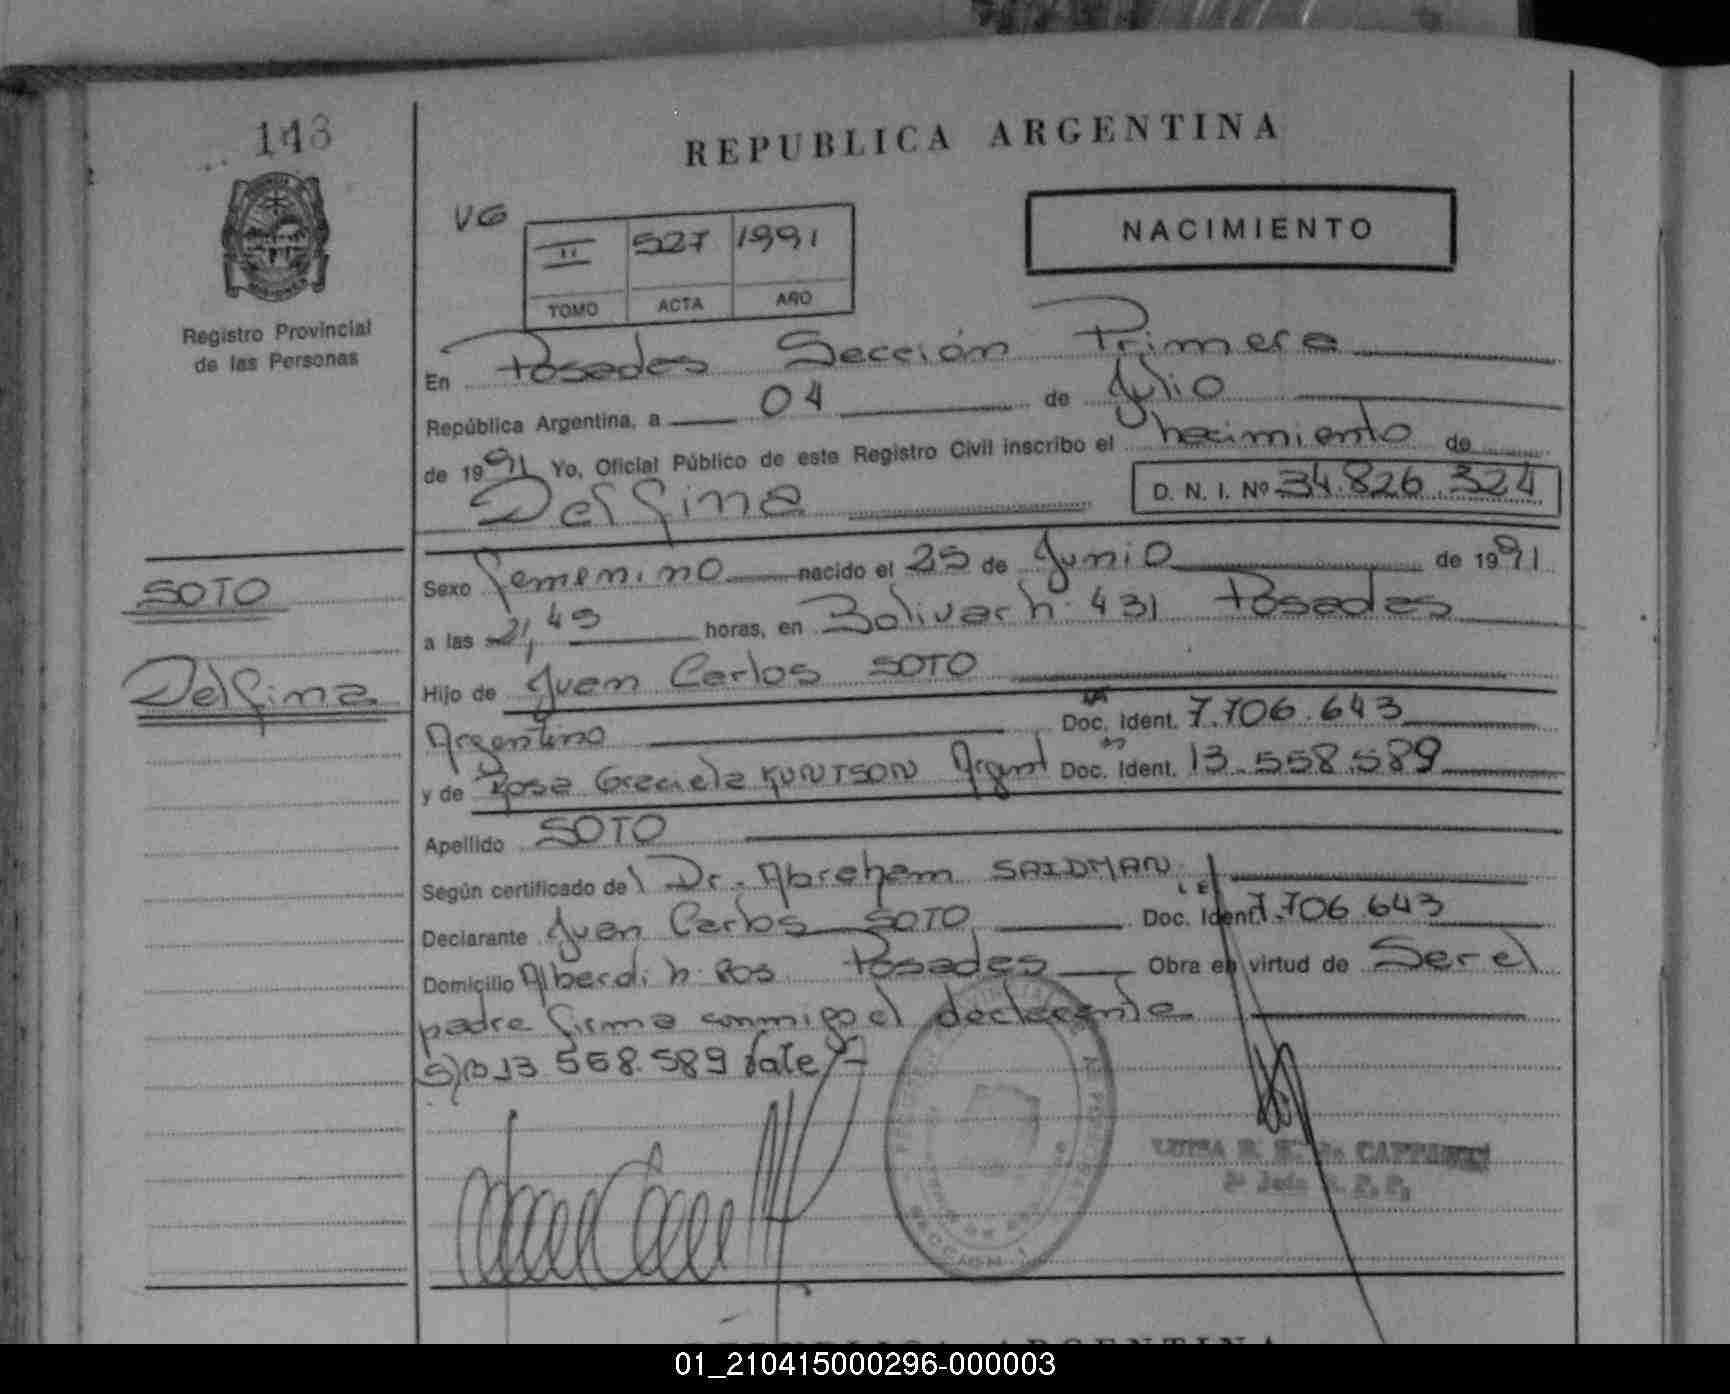 143
REPUBLICA ARGENTINA
VG
II 527 1991
TOMO ACTA AÑO
NACIMIENTO
Registro Provincial
de las Personas
En Posadas Sección Primera
República Argentina, a 04 de Julio
de 1991 Yo, Oficial Público de este Registro Civil inscribo el nacimiento de
Delfina D. N. I. Nº 34.826.324
SOTO
Delfina
Sexo femenino nacido el 25 de Junio de 1991
a las 21,45 horas, en Bolivar n. 431 Posadas
Hijo de Juan Carlos SOTO
Argentino Doc. Ident. 7.706.643
y de Rosa Graciela KUNTSON Argent Doc. Ident. 13.558.589
Apellido SOTO
Según certificado del Dr. Abraham SAIDMAN
Declarante Juan Carlos SOTO LE Doc. Ident. 7.706.643
Domicilio Alberdi n. Posadas Obra en virtud de Ser el
padre firma conmigo el declarante.
13 558.589 Vale
SECCION 1
LUISA
REPUBLICA ARGENTINA
01_210415000296-000003